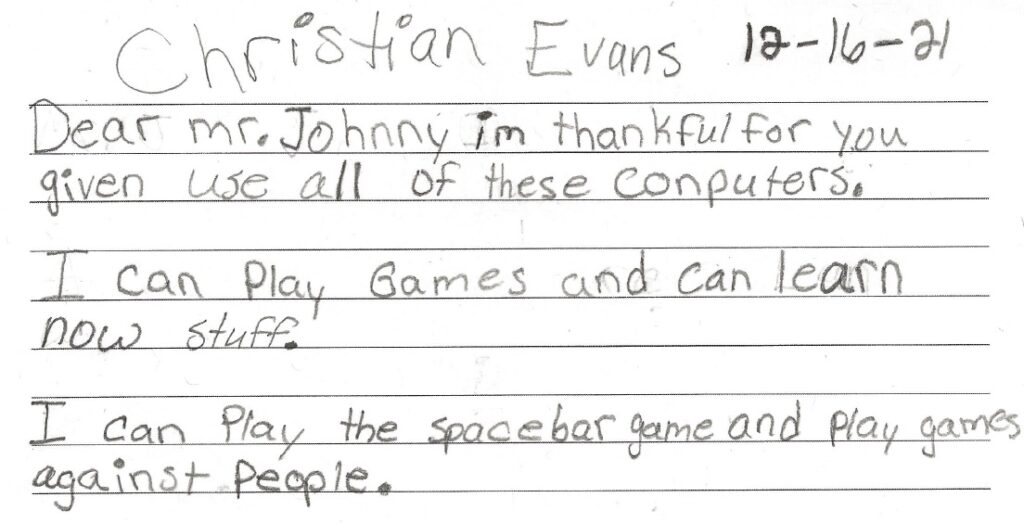 Christian Evans 12-16-21
Dear mr. Johnny im thankful for you
given use all of these conputers.
I can Play Games and can learn
now stuff.
I can Play the spacebar game and play games
against People.